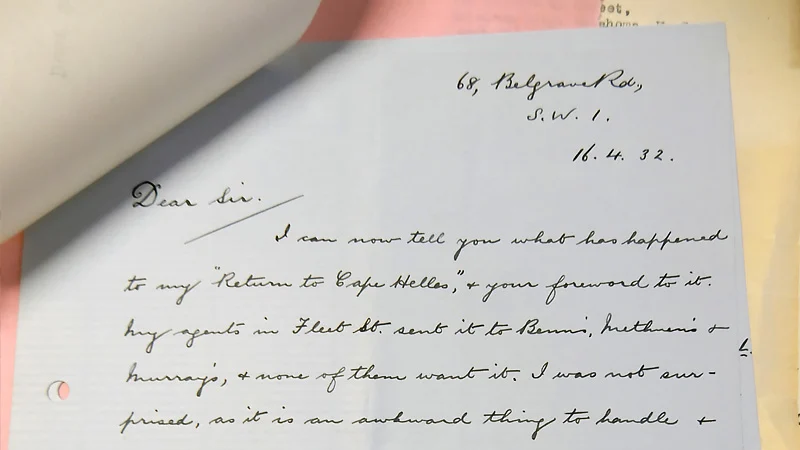 eet,
68, Belgrave Rd.,
S.W. 1.
16. 4. 32.
Dear Sir.
I can now tell you what has happened
to my "Return to Cape Helles," & your foreword to it.
My agents in Fleet St. sent it to Benn's, Methuen's &
Murray's, & none of them want it. I was not sur-
prised, as it is an awkward thing to handle &